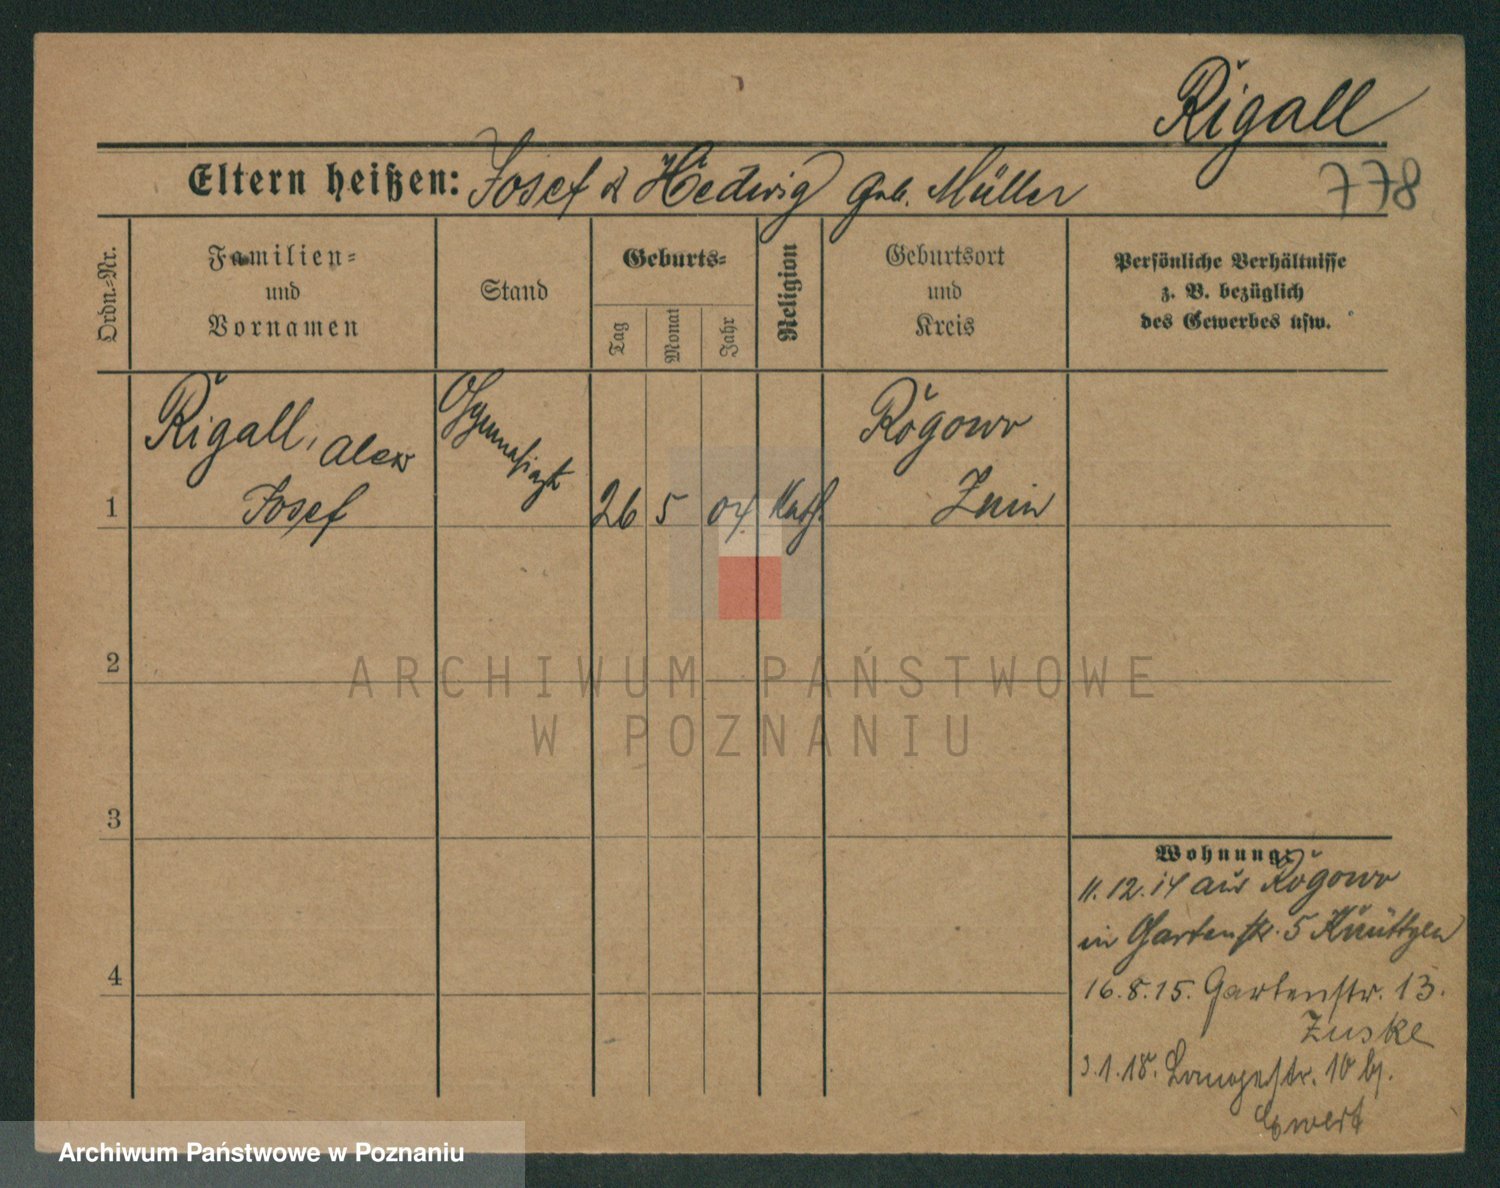 Rigall
778
Eltern heißen: Josef & Hedwig geb. Müller
Ordn.-Nr.
Familien-
und
Vornamen
Stand
Geburts-
Tag
Monat
Jahr
Religion
Geburtsort
und
Kreis
Persönliche Verhältnisse
z. B. bezüglich
des Gewerbes usw.
1
Rigall, Alex
Josef
Gymnasiast
26
5
04.
Kath.
Rogowo
Znin
2
3
4
Wohnung:
11.12.14 aus Rogowo
in Gartenstr. 5 Knüttgen
16.8.15. Gartenstr. 13.
Zuske
3.1.18. Langestr. 10 bj.
Ewert
ARCHIWUM PAŃSTWOWE
W POZNANIU
Archiwum Państwowe w Poznaniu